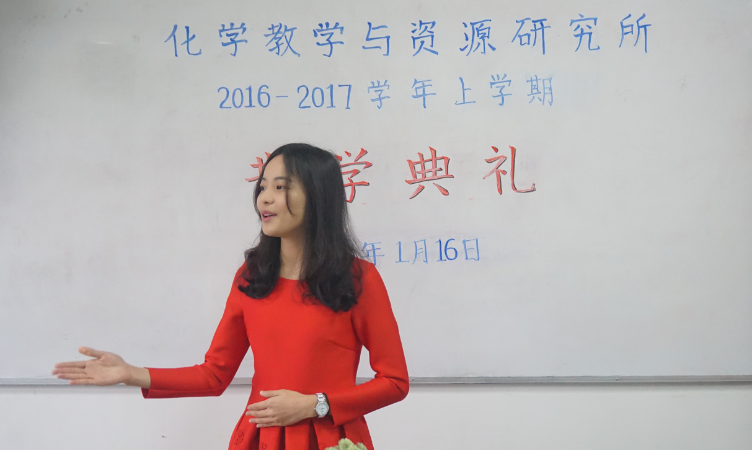 化学教学与资源研究所
2016-2017学年上学期
学典礼
年1月16日